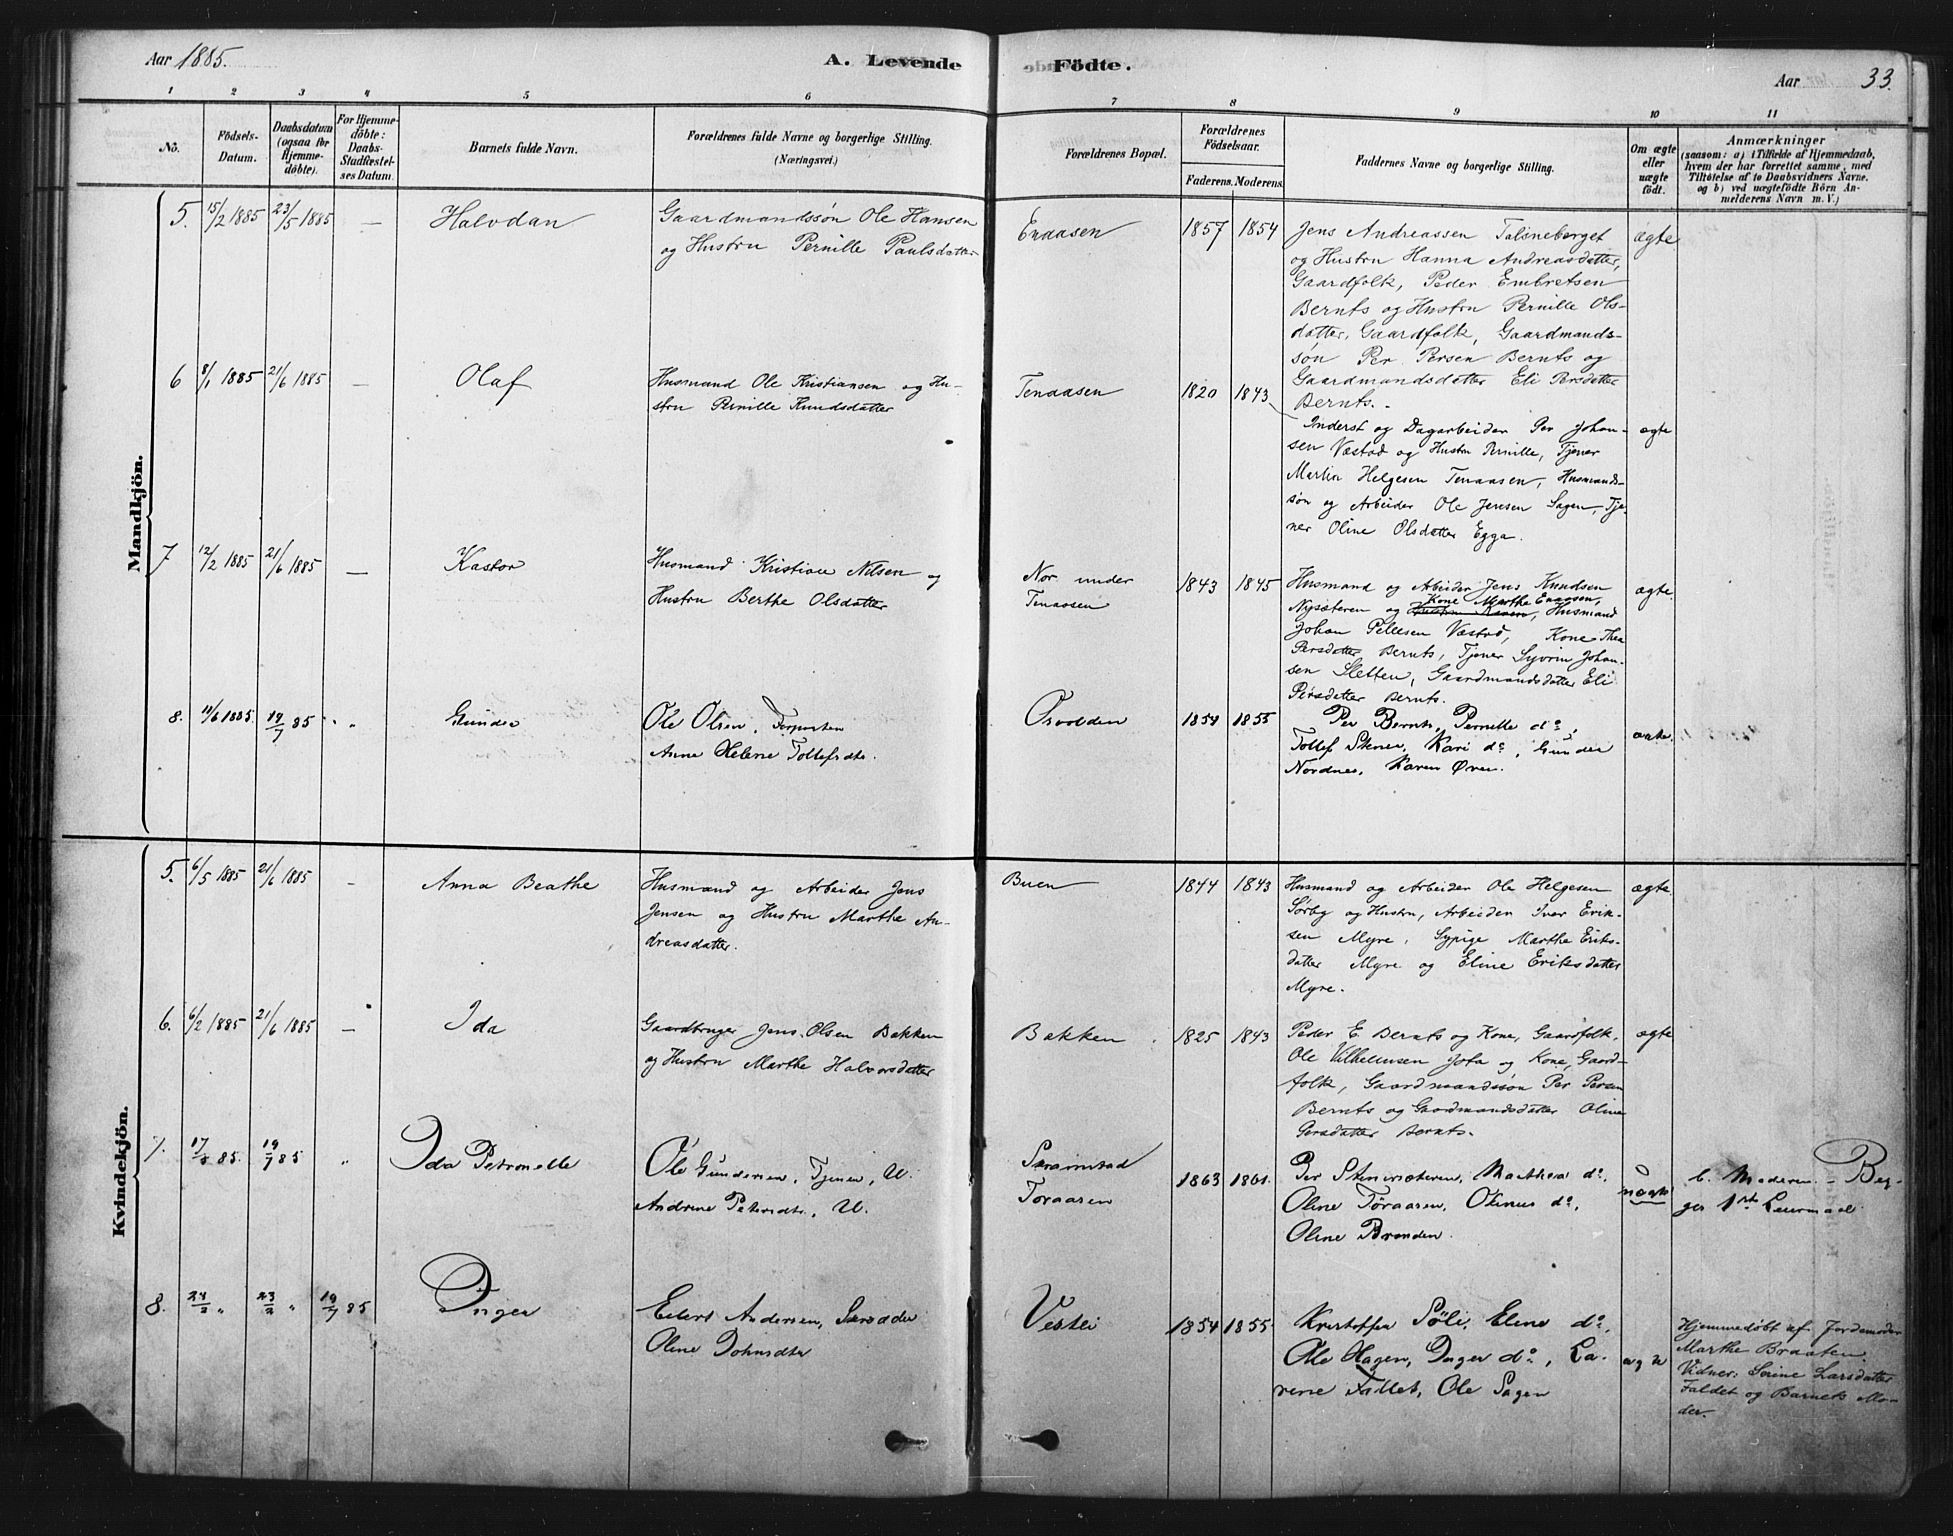 Aar 1885.
A. Levende Födte.
Aar
33.
1 2 3 4 5 6 7 8 9 10 11
No.
Födsels-
Datum.
Daabsdatum
(ogsaa for
Hjemme-
döbte).
For Hjemme-
döbte:
Daabs-
Stadfæstel-
ses Datum.
Barnets fulde Navn.
Forældrenes fulde Navne og borgerlige Stilling.
(Næringsvei.)
Forældrenes Bopæl.
Forældrenes
Födselsaar.
Faderens. Moderens.
Faddernes Navne og borgerlige Stilling.
Om ægte
eller
uægte
födt.
Anmærkninger
(saasom: a) i Tilfælde af Hjemmedaab,
hvem der har forrettet samme, med
Tilföielse af to Daabsvidners Navne.
og b) ved uægtefödte Börn An-
melderens Navn m. V.)
Mandkjön.
5. 15/2 1885 23/5 1885 — Halvdan
Gaardmandssön Ole Hansen
og Hustru Pernille Paulsdatter
Enaasen 1857 1854
Jens Andreassen Talsneberget
og Hustru Hanna Andreasdatter,
Gaardfolk, Peder Embretsen
Bernts og Hustru Pernille Ols-
datter, Gaardfolk, Gaardmands-
søn Per Persen Bernts og
Gaardmandsdatter Eli Persdatter
Bernts.
ægte
6 8/1 1885 21/6 1885 — Olaf
Husmand Ole Kristiansen og Hu-
stru Pernille Knudsdatter
Tenaasen 1820 1843
Inderst og Dagarbeider Per Johan-
sen Væstad og Hustru Pernille, Tjener
Martin Helgesen Tenaasen, Husmands-
søn og Arbeider Ole Jensen Sagen, Tje-
ner Oline Olsdatter Egga.
ægte
7 12/2 1885 21/6 1885 — Kastor
Husmand Kristian Nilsen og
Hustru Berthe Olsdatter
Nor under
Tenaasen
1843 1845
Husmand og Arbeider Jens Knudsen
Nysæteren og Kone Marthe Enaasen, Husmand
Johan Pellesen Væstad, Kone Thea
Persdatter Bernts, Tjener Syvrin Johan-
sen Sletten, Gaardmandsdatter Eli
Persdatter Bernts.
ægte.
8. 11/6 1885. 19/7 85 " " Gunder
Ole Olsen,
Anne Helene Tollefsdtr.
1854 1855
Per Bernts, Pernille do,
Tollef Stener, Kari do, Gunder
Nordnes, Karen Øren.
ægte.
Kvindekjön.
5. 6/5 1885 21/6 1885 — Anna Beathe
Husmand og Arbeider Jens
Jensen og Hustru Marthe An-
dreasdatter.
Buen 1844 1843
Husmand og Arbeider Ole Helgesen
Sørby og Hustru, Arbeider Iver Erik-
sen Myre, Sypige Marthe Eriks-
datter Myre og Eline Eriksdatter
Myre.
ægte.
6. 6/2 1885 21/6 1885 — Ida
Gaardbruger Jens Olsen Bakken
og Hustru Marthe Halvorsdatter
Bakken. 1825 1843
Peder E. Bernts og Kone, Gaardfolk,
Ole Vilhelmsen Jota og Kone, Gaard-
folk, Gaardmandssön Per Persen
Bernts og Gaardmandsdatter Oline
Persdatter Bernts.
ægte
7. 85. 19/7 85 " Ida Petronelle
Ole Gundersen, Tjener, U.
Andrine Petersdtr. U.
Toraasen
1863 1861.
Per Stenersæteren, Marthea do,
Oline Töraasen, Otinus do,
Oline Brænden.
uægte
b. Moderen - Beg-
ges 1st Leiermaal
8. 23/2 " 19/7 85 Inger
Eilert Andersen,
Oline Johnsdtr
Vestli 1854 1855.
Kristoffer Söli, Eline do,
Ole Hagen, Inger do, La-
rine Fallet, Ole Sagen
ægte
Hjemmedøbt af Jordemoder
Marthe Braaten.
Vidner: Serine Larsdatter
Faldet og Barnets Mo-
der.